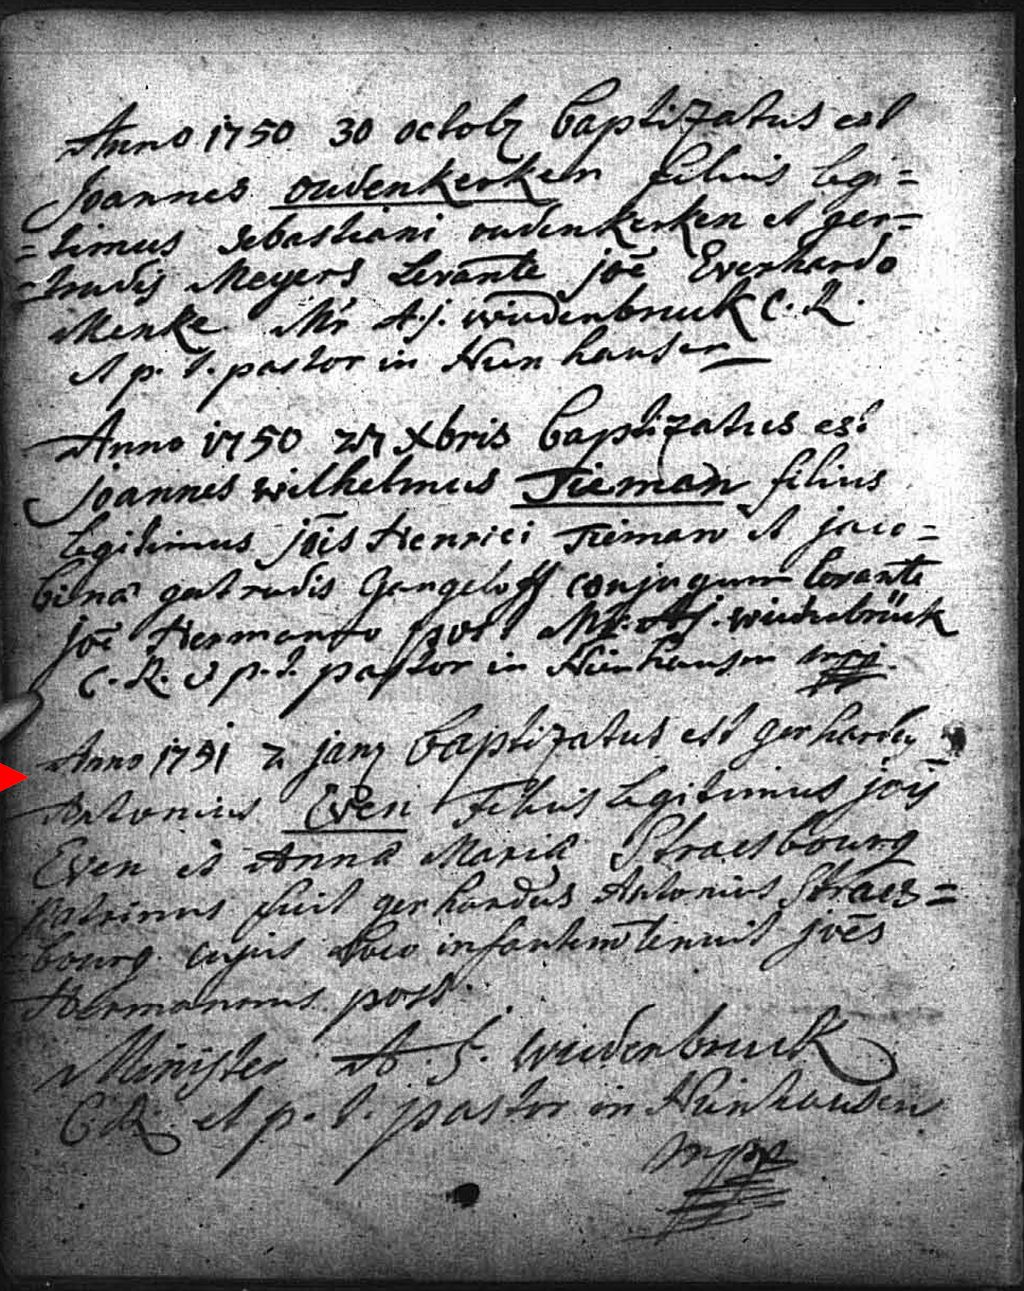 Anno 1750 30 octobr baptizatus est
Joannes oudenkerken filius legi=
=timus sebastiani oudenkerken et ger=
=trudis Meyers Levante joe Everhardo
Menke Mr A.j. wiedenbruck C. R.
et p. t. pastor in Hünhausen
Anno 1750 27 Xbris baptizatus est
joannes wilhelmus Tieman filius
legitimus jois Henrici Tieman et jaco=
bina gertrudis Gangeloff conjugum levante
joe Hermanno post Mr. A.j. wiedenbrück
C. R. et p. t. pastor in Hünhausen mpp.
Anno 1751 2 janr baptizatus est gerhardus
Antonius Even Filius legitimus jois
Even et Anna Maria Straesbourg
patrinus fuit gerhardus Antonius Straes=
=bourg cujus loco infantem tenuit joes
Hermannus post.
Minister A. J. wiedenbruck
C.R. et p. t. pastor in Hünhausen
mpp